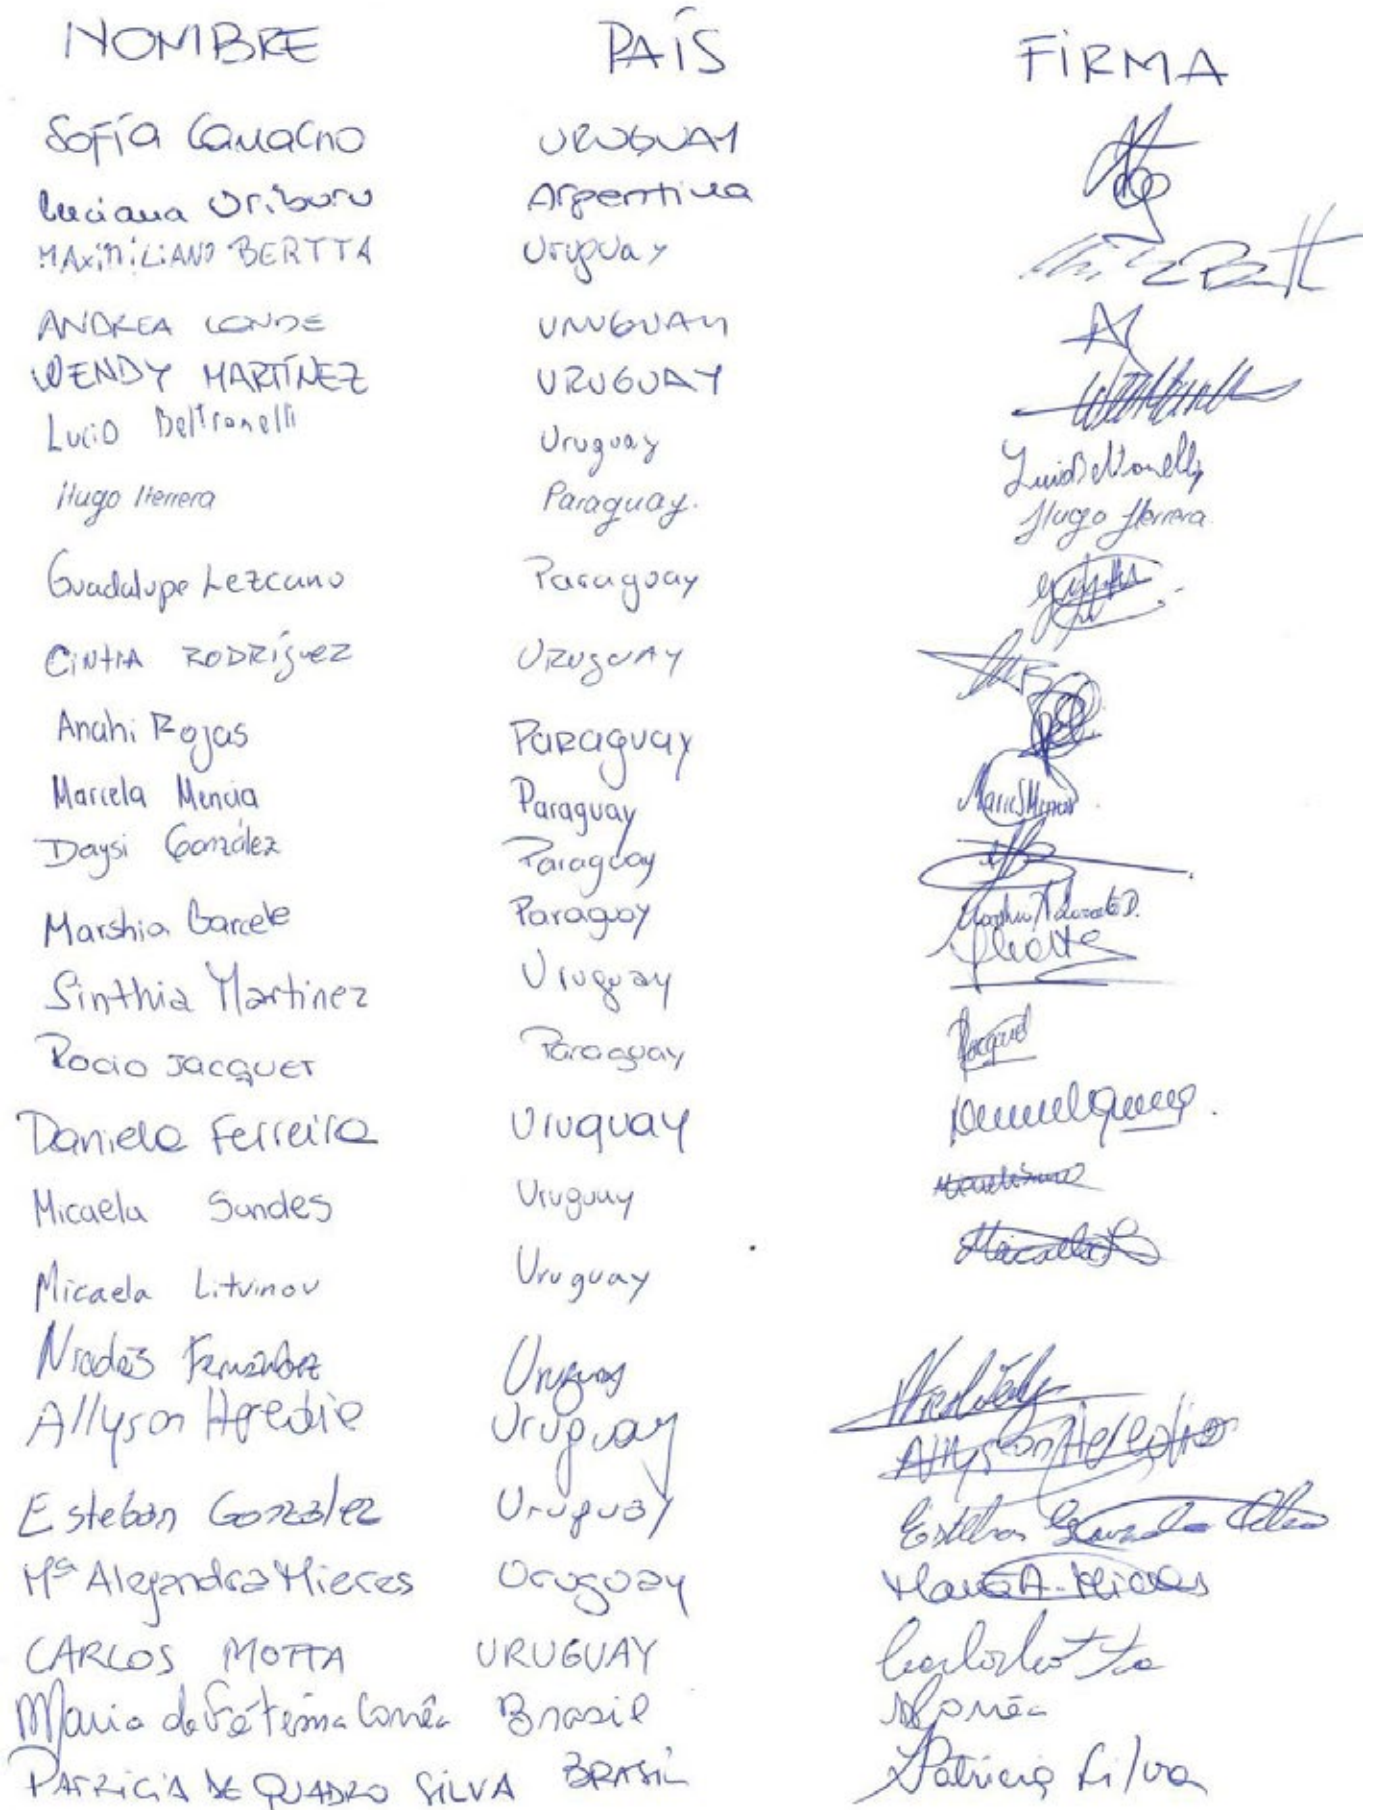 NOMBRE PAÍS FIRMA
Sofía Camacho URUGUAY
Luciana Oriburu Argentina
MAXIMILIANO BERTTA Uruguay
ANDREA CONDE URUGUAY
WENDY MARTÍNEZ URUGUAY
Lucio Beltranelli Uruguay Lucio Beltranelli
Hugo Herrera Paraguay. Hugo Herrera
Guadalupe Lezcano Paraguay
CINTIA RODRÍGUEZ URUGUAY
Anahi Rojas PARAGUAY
Marcela Mencia Paraguay
Daysi González Paraguay
Marshia Barcele Paraguay
Sinthia Martinez Uruguay
Rocio JACQUET Paraguay
Daniela Ferreira Uruguay
Micaela Sandes Uruguay
Micaela Litvinov Uruguay
Fernández Uruguay
Allyson Heredia Uruguay Allyson Heredia
Esteban González Uruguay Esteban
Mª Alejandra Mieres Uruguay María A. Mieres
CARLOS MOTTA URUGUAY Carlos Motta
Maria de Fátima Corrêa Brasil
PATRICIA DE QUADRO SILVA BRASIL Patricia Silva